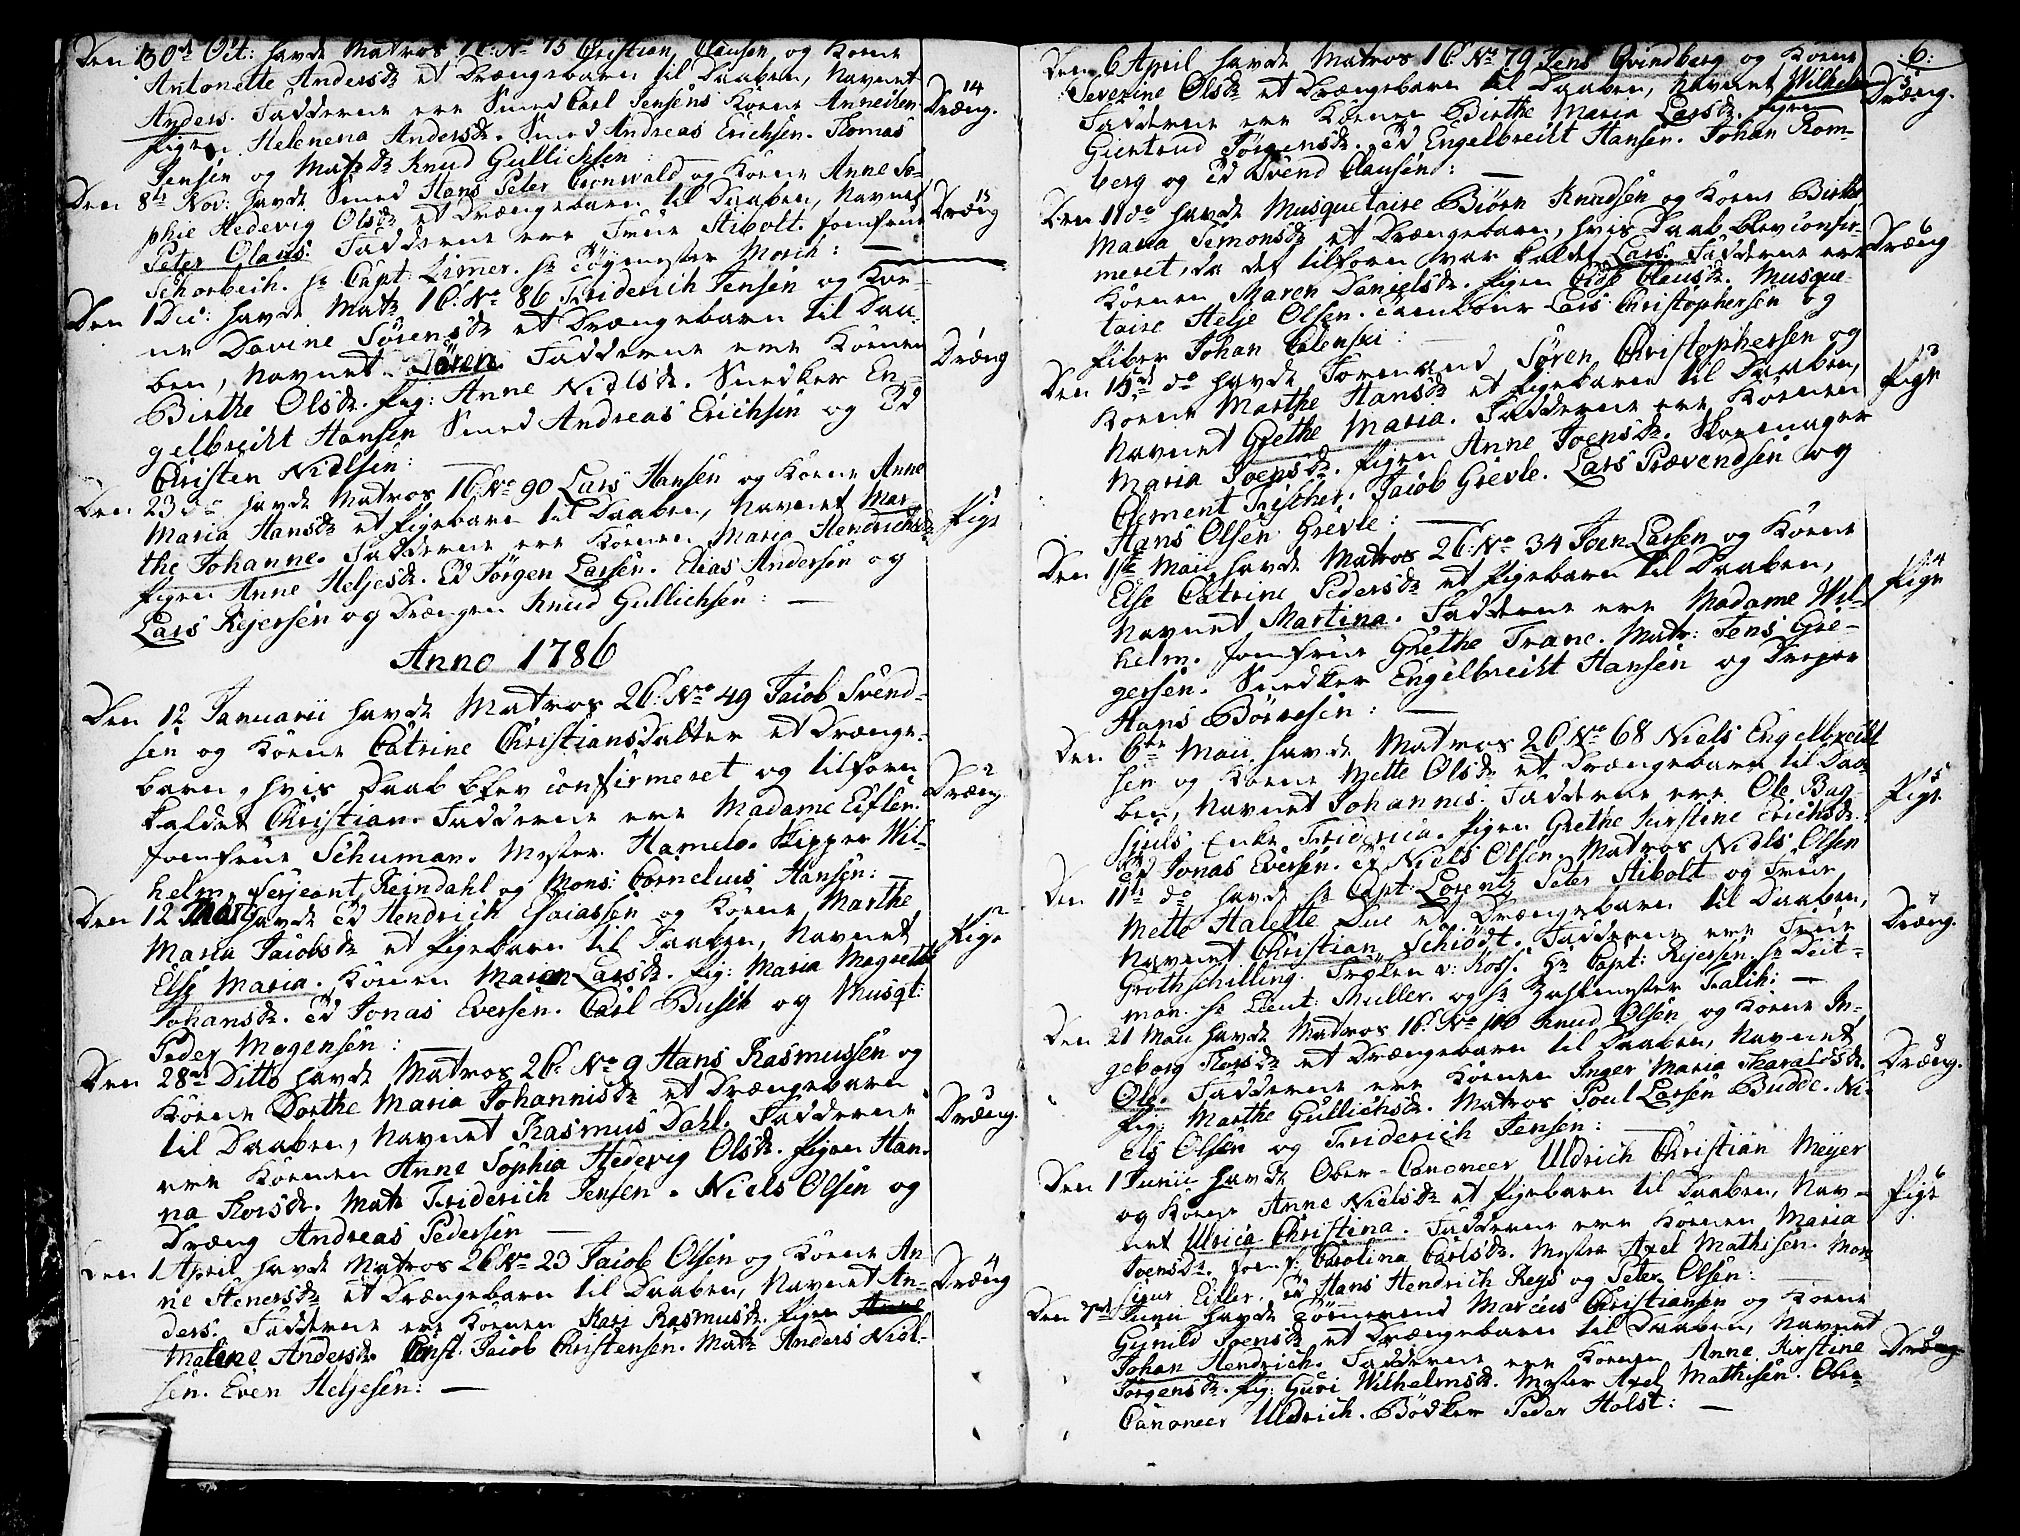 Den 30d Oct: havde Matros 1C: No 75 Christian Clausen og Kone
Antonette Andersdr et Drængebarn til Daaben, Navnet
Anders. Fadderne ere Smed Carl Jensens Kone Annichen
Pigen Helenena Andersdr. Smed Andreas Erichsen. Thomas
Jensen og Matr Knud Gullichsen:
14
Dræng.
Den 8de Nov: havde Smed Hans Peter Cronwald og Kone Anne So-
phie Hedevig Olsdr et Drængebarn til Daaben, Navnet
Peter Olaus. Fadderne ere Frue Stibolt. Jomfrue
Schorbech. Hr Capt: Limer. Hr Töymester Morch:
15
Dræng
Den 1 Dec: havde Matr 1C: No 86 Friderich Jensen og Ko-
ne Davine Sørensdr et Drængebarn til Daa-
ben, Navnet Sören. Fadderne ere Konen
Birthe Olsdr. Pig: Anne Nielsdr. Snedker En-
gelbrecht Hansen Smed Andreas Erichsen og Ed
Christen Nielsen:
Dræng
Den 23 do havde Matros 1C: No 90 Lars Hansen og Kone Anne
Maria Hansdr et Pigebarn til Daaben, Navnet Mar-
the Johanne. Fadderne ere Konen Maria Hendrichsdr
Pigen Anne Heljesdr. Ed Jørgen Larsen. Elias Andersen og
Lars Rejersen og Drængen Knud Gullichsen:
1
Pige
Anno 1786
Den 12 Januarii havde Matros 2C: No 49 Jacob Svend-
sen og Kone Catrine Christiansdatter et Drænge-
barn, hvis Daab blev confirmeret og tilforn
kaldet Christian. Fadderne ere Madame Eifler.
Jomfrue Schuman. Mester Hamelo. Skipper Wil-
helm. Serjeant Reindahl og Mons: Cornelius Hansen:
2
Dræng.
Den 12 Marts havde Ed Hendrich Esaiassen og Kone Marthe
Maria Jacobsdr et Pigebarn til Daaben, Navnet
Else Maria. Konen Maren Larsdr. Pig: Maria Magreta
Johansdr. Ed Jonas Eversen. Carl Busch og Musqt:
Peder Mogensen:
2
Pige
Den 28de Ditto havde Matros 2C: No 9 Hans Rasmussen og
Kone Dorthe Maria Johannisdr et Drængebarn
til Daaben, Navnet Rasmus Dahl. Fadderne
ere Konen Anne Sophia Hedevig Olsdr. Pigen Han-
na Thorsdr. Matr Friderich Jensen. Niels Olsen og
Dræng Andreas Pedersen
3
Dræng.
Den 1 April havde Matros 2C No 23 Jacob Olsen og Kone An-
ne Stenersdr et Drængebarn til Daaben, Navnet An-
ders. Fadderne ere Konen Kari Rasmusdr. Pigen Anne
Malene Andersdr. Const. Jacob Christensen. Matr Anders Niel-
sen. Even Heljesen:
4
Dræng
6:
Den 6 April havde Matros 1C: No 79 Jens Qvindberg og Kone
Severine Olsdr et Drængebarn til Daaben, Navnet Wilhelm
Fadderne ere Konen Birthe Maria Larsdr. Pigen
Giertrud Jørgensdr. Ed Engelbrecht Hansen. Johan Rom-
berg og Ed Svend Clausen:
5
Dræng.
Den 11 do havde Musquetaire Biörn Knudsen og Kone Birthe
Maria Simonsdr et Drængebarn, hvis Daab blev confir-
meret, da det tilforn var kaldet Lars. Fadderne ere
Konen Maren Danielsdr. Pigen Eidse Clausdr. Musque-
taire Helje Olsen. Tambour Lars Christophersen og
Piber Johan Colenski:
6
Dræng
Den 15de do havde Formand Søren Christophersen og
Kone Marthe Hansdr et Pigebarn til Daaben,
Navnet Grethe Maria. Fadderne ere Konen
Maria Joensdr. Pigen Anne Joensdr. Skoemager
Clement Fischer. Jacob Grevle. Lars Prævendsen og
Hans Olsen Grevle:
3
Pige
Den 1ste Maii havde Matros 2C: No 34 Joen Larsen og Kone
Else Catrine Pedersdr et Pigebarn til Daaben,
Navnet Martina. Fadderne ere Madame Wil-
helm. Jomfrue Grethe Trane. Matr: Jens Gre-
gersen. Snedker Engelbrecht Hansen og Dreyer
Hans Börresen:
4
Pige
Den 6te Maii havde Matros 2C No 68 Niels Engelbrecht-
sen og Kone Mette Olsdr et Drængebarn til Daa-
ben, Navnet Johannes. Fadderne ere Ole Bag-
Spiels Enke Fridericia. Pigen Grethe Kirstine Erichsdr.
Ed Jonas Eversen. Ed Niels Olsen. Matros Niels Olsen
5
Pige
Den 11te do havde Hr Capt: Lorentz Peter Stibolt og Frue
Mette Halette Due et Drængebarn til Daaben,
Navnet Christian Schiödt. Fadderne ere Frue
Grothschilling. Frølen v: Koss. Hr Capt: Rejersen. Hr Deit-
man. Hr Lieut: Muller. og Hr Zahlmester Falch:
7
Dræng.
Den 21 Maii havde Matros 1C. No 110 Knud Olsen og Kone In-
geborg Thorsdr et Drængebarn til Daaben, Navnet
Ole. Fadderne ere Konen Inger Maria Tharaldsdr.
Pig: Marthe Gullichsdr. Matros Poul Larsen Budde. Ni-
els Olsen og Friderich Jensen:
8
Dræng.
Den 1 Junii havde Ober-Canoneer Uldrich Christian Meyer
og Kone Anne Nielsdr et Pigebarn til Daaben, Nav-
net Ulrica Christina. Fadderne ere Konen Maria
Joensdr. Jomf: Carolina Carlsdr. Mester Axel Mathisen. Mon-
sieur Eifler. Ed Hans Hendrich Reys og Peter Olsen:
6
Pige
Den 7de Junii havde Tömmermd Marcus Christiansen og Kone
Gunild Joensdr et Drængebarn til Daaben, Navnet
Johan Hendrich. Fadderne ere Konen Anne Kirstine
Jörgensdr. Pig: Guri Wilhelmsdr. Mester Axel Mathisen. Ober-
Canoneer Uldrich. Bödker Peder Holst:
9
Dræng